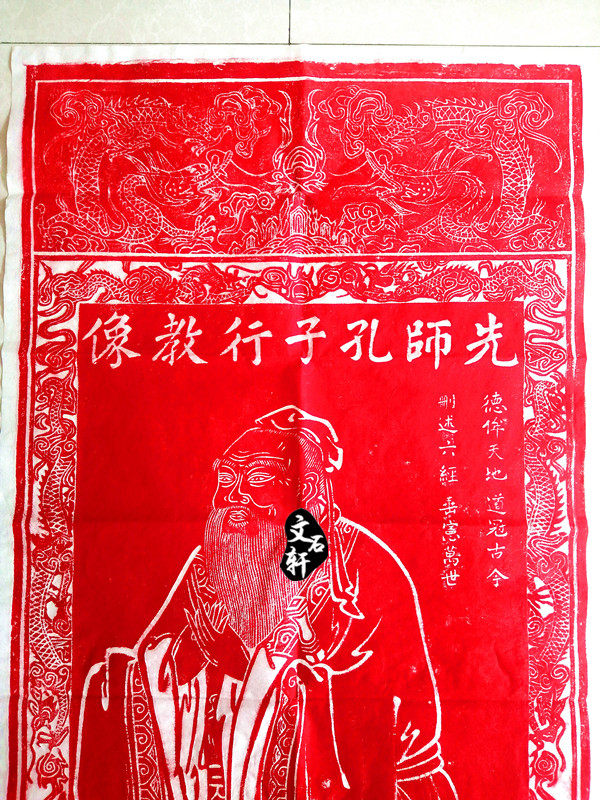 先師孔子行教像
德侔天地道冠古今
刪述六經垂憲萬世
文石轩